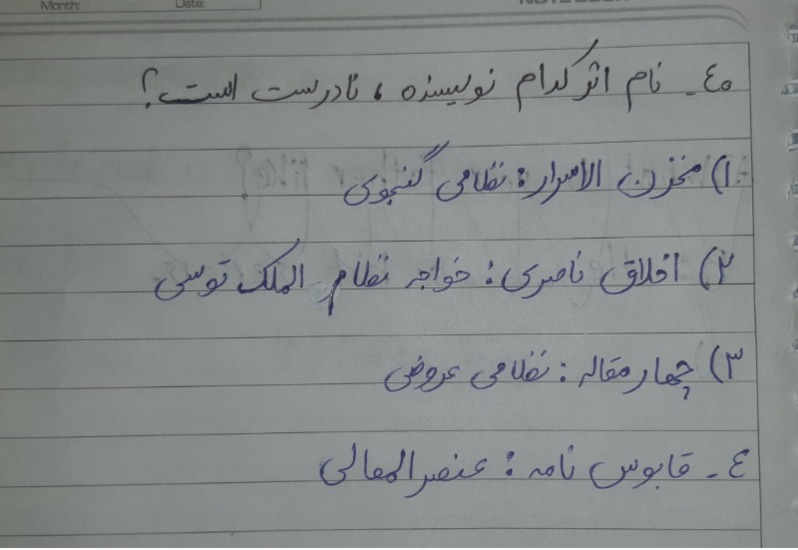 Month: Date: NOTE BOOK
٤٠- نام اثر کدام نویسنده ، نادرست است؟
۱) مخزن الاسرار: نظامی گنجوی
۲) اخلاق ناصری: خواجه نظام الملک توسی
۳) چهار مقاله: نظامی عروضی
٤- قابوس نامه: عنصرالمعالی